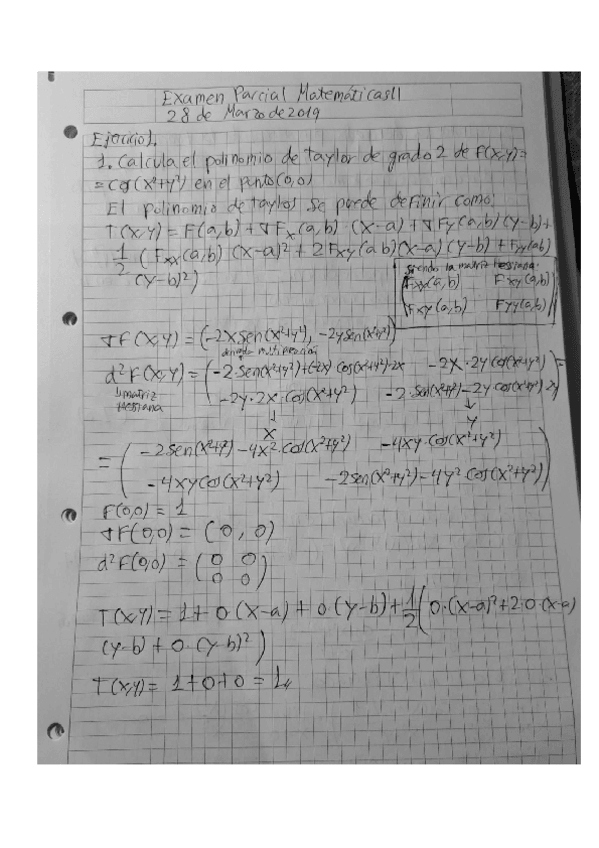 Examen Parcial Matemáticas II
28 de Marzo de 2019
Ejercicio 1.
1. Calcula el polinomio de taylor de grado 2 de F(x,y)=
= cos(x²+y²) en el punto (0,0)
El polinomio de taylor se puede definir como:
T(x,y) = F(a,b) + ∇Fx(a,b) · (x-a) + ∇Fy(a,b)(y-b)+
1/2 (Fxx(a,b) (x-a)² + 2Fxy(a,b)(x-a)(y-b) + Fyy(a,b)
(y-b)²)
siendo la matriz hessiana:
Fxx(a,b) Fxy(a,b)
Fxy(a,b) Fyy(a,b)
∇F(x,y) = (-2x sen(x²+y²), -2y sen(x²+y²))
d²F(x,y) = (-2 sen(x²+y²)+(-2x) cos(x²+y²)·2x -2x·2y cos(x²+y²) =
matriz
Hessiana
-2y·2x·cos(x²+y²) -2·sen(x²+y²)-2y cos(x²+y²)·2y)
x
y
= (-2sen(x²+y²)-4x²·cos(x²+y²) -4xy·cos(x²+y²)
-4xy cos(x²+y²) -2sen(x²+y²)-4y²·cos(x²+y²))
F(0,0) = 1
∇F(0,0) = (0, 0)
d²F(0,0) = (0 0
0 0)
T(x,y) = 1+0·(x-a)+0·(y-b)+1/2(0·(x-a)²+2·0·(x-a)
(y-b)+0·(y-b)²)
T(x,y) = 1+0+0 = 1